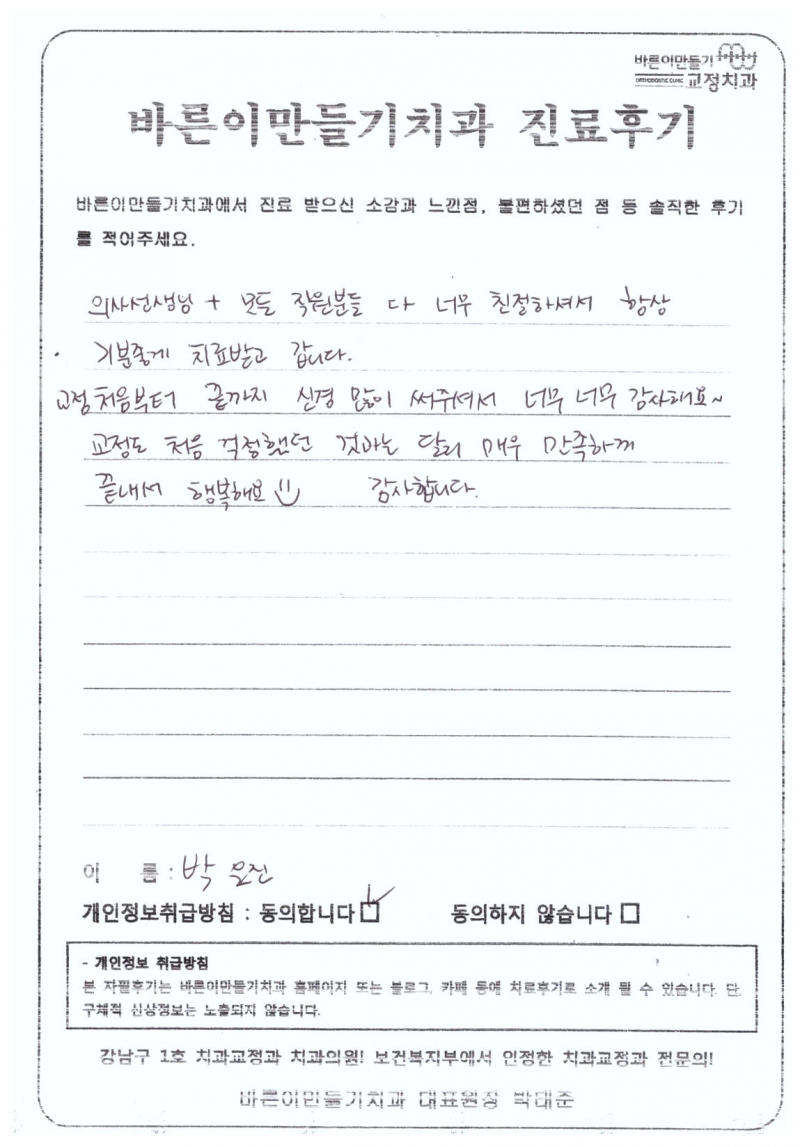 바른이만들기
ORTHODONTIC CLINIC 교정치과
바른이만들기치과 진료후기
바른이만들기치과에서 진료 받으신 소감과 느낀점, 불편하셨던 점 등 솔직한 후기
를 적어주세요.
의사선생님 + 모든 직원분들 다 너무 친절하셔서 항상
기분좋게 치료받고 갑니다.
교정 처음부터 끝까지 신경 많이 써주셔서 너무 너무 감사해요~
교정도 처음 걱정했던 것과는 달리 매우 만족하게
끝내서 행복해요 감사합니다.
이 름 : 박 은진
개인정보취급방침 : 동의합니다 동의하지 않습니다
- 개인정보 취급방침
본 자필후기는 바른이만들기치과 홈페이지 또는 블로그, 카페 등에 치료후기로 소개 될 수 있습니다. 단,
구체적 신상정보는 노출되지 않습니다.
강남구 1호 치과교정과 치과의원! 보건복지부에서 인정한 치과교정과 전문의!
바른이만들기치과 대표원장 박대준